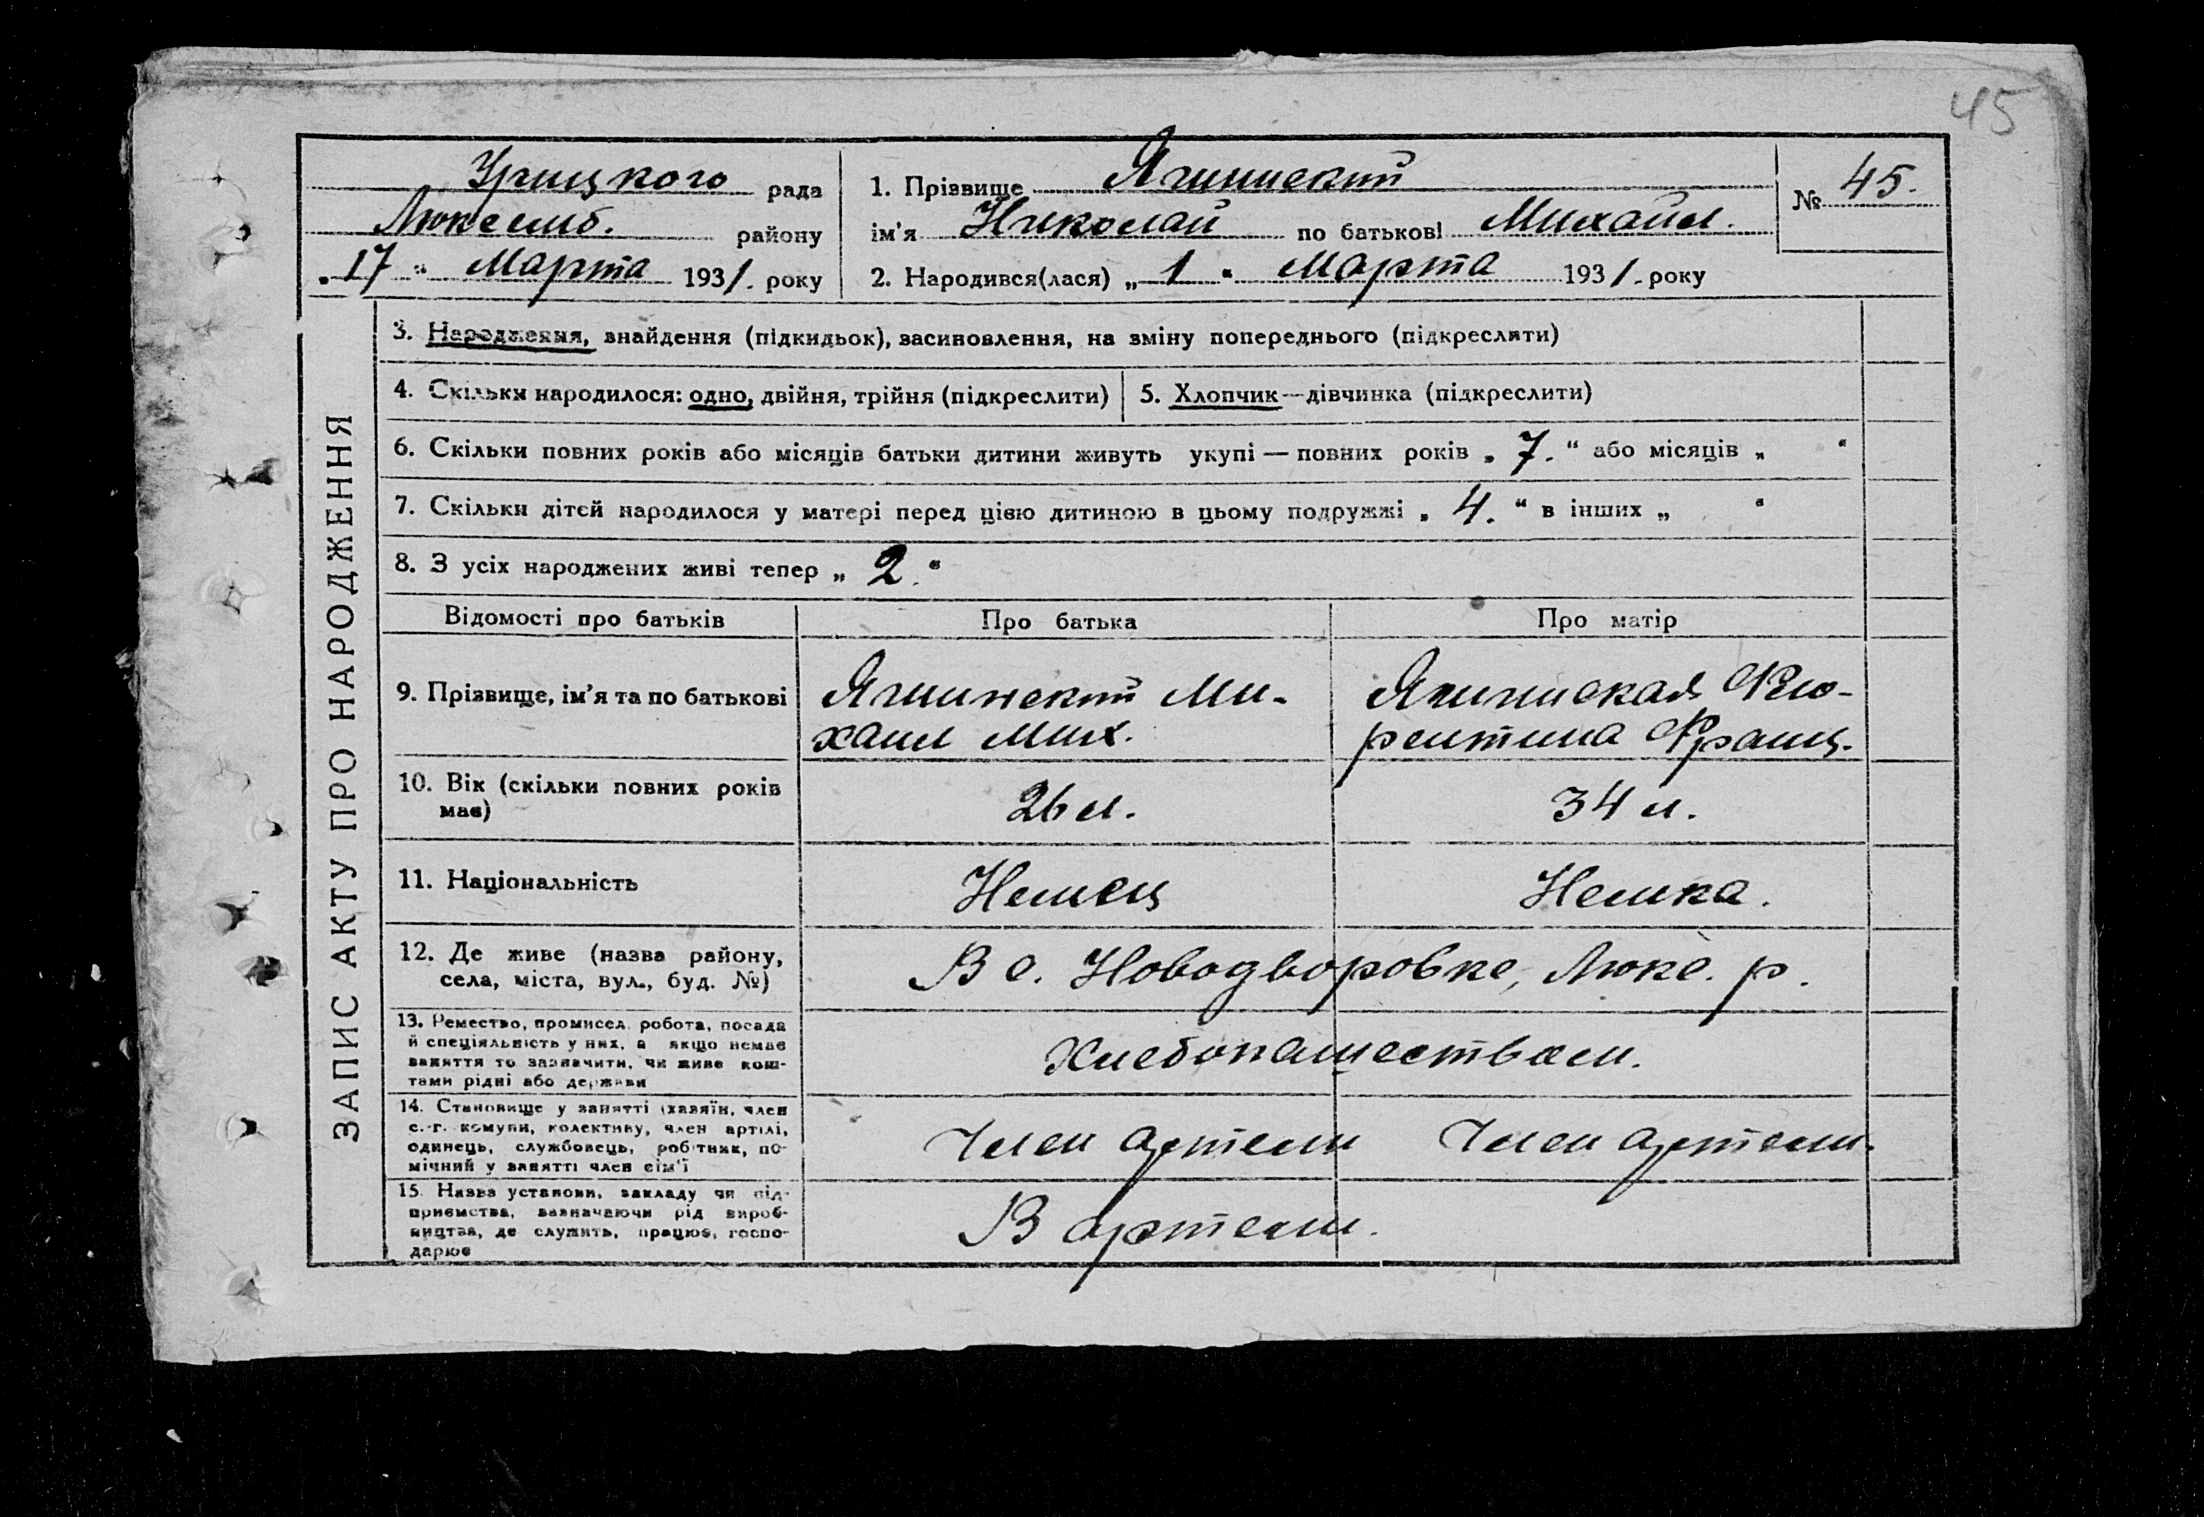 45
Урицкого рада
Люксемб. району
„17“ Марта 1931. року
1. Прізвище Ягиинский
ім'я Николай по батькові Михайл.
2. Народився(лася) „1“ Марта 1931. року
№ 45.
ЗАПИС АКТУ ПРО НАРОДЖЕННЯ
3. Народження, знайдення (підкидьок), засиновлення, на зміну попереднього (підкреслити)
4. Скільки народилося: одно, двійня, трійня (підкреслити)
5. Хлопчик—дівчинка (підкреслити)
6. Скільки повних років або місяців батьки дитини живуть укупі — повних років „7.“ або місяців „ “
7. Скільки дітей народилося у матері перед цією дитиною в цьому подружжі „4.“ в інших „ “
8. З усіх народжених живі тепер „2.“
Відомості про батьків Про батька Про матір
9. Прізвище, ім'я та по батькові
Ягиинский Ми-
хаил Мих.
Ягиинская Фло-
рентина Франц.
10. Вік (скільки повних років
має)
26 л. 34 л.
11. Національність Немец Немка.
12. Де живе (назва району,
села, міста, вул., буд. №)
В с. Новодворовке, Люкс. р.
13. Ремество, промисел, робота, посада
й спеціяльність у них, а якщо немає
заняття то зазначити, чи живе кош-
тами рідні або держави
Хлебопашеством.
14. Становище у занятті (хазяїн, член
с.-г. комуни, колективу, член артілі,
одинець, службовець, робітник, по-
мічний у занятті член сім'ї
Член артели Член артели.
15. Назва установи, закладу чи під-
приємства, зазначаючи рід вироб-
ництва, де служить, працює, госпо-
дарює
В артели.